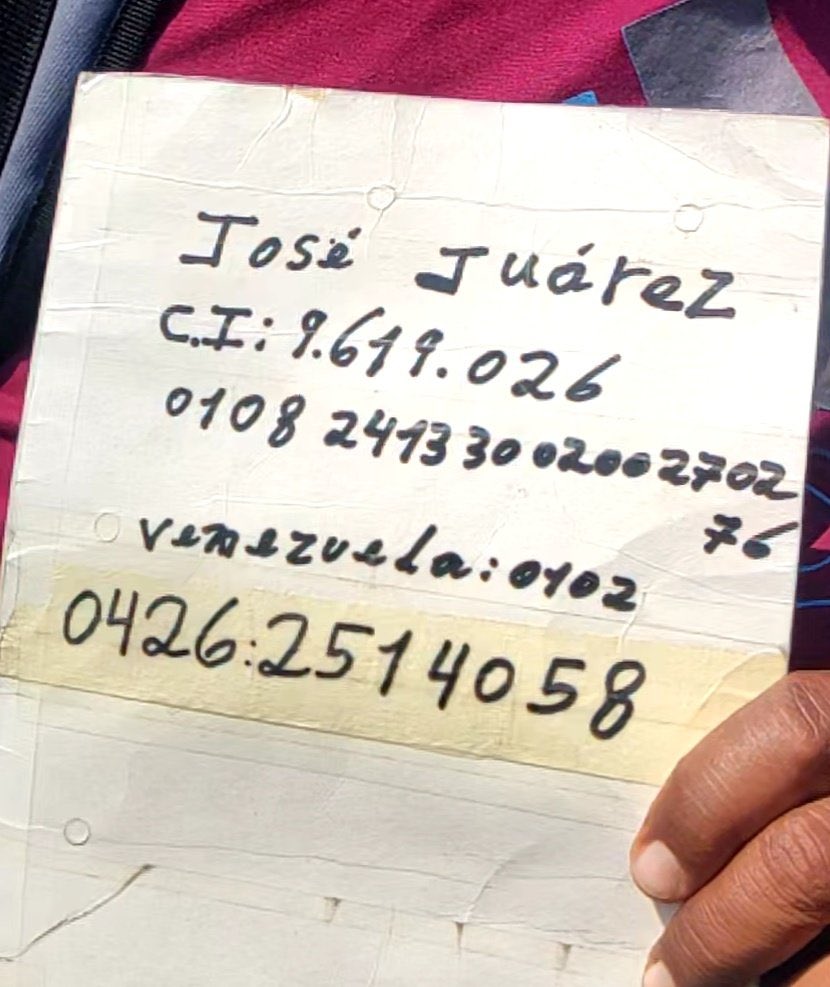 José Juárez
C.I: 9.619.026
0108 24133002002702
76
venezuela: 0102
0426:2514058